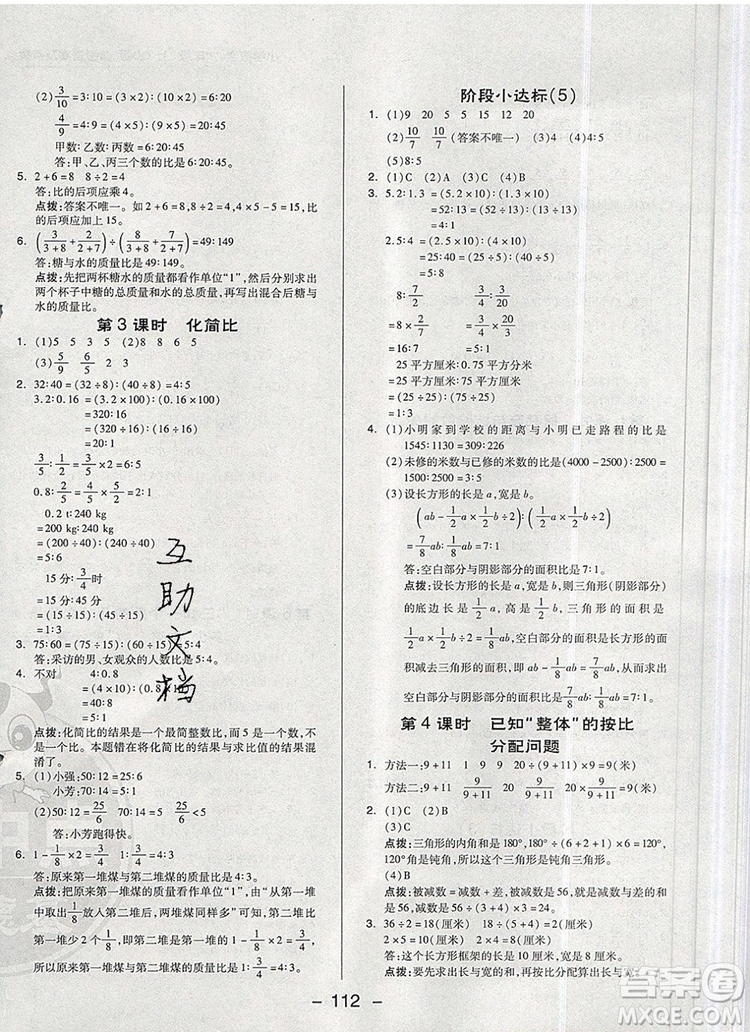 (2) 3/10=3:10=(3×2):(10×2)=6:20
4/9=4:9=(4×5):(9×5)=20:45
甲数:乙数:丙数=6:20:45
答:甲、乙、丙三个数的比是6:20:45。
5. 2+6=8 8÷2=4
答:比的后项应乘4。
点拨:答案不唯一。如2+6=8,8÷2=4,4×5-5=15,
比的后项应加上15。
6. (3/(3+8)+2/(2+7))÷(8/(3+8)+7/(2+7))=49:149
答:糖与水的质量比是49:149。
点拨:先把两杯糖水的质量都看作单位"1",然后分别求出
两个杯子中糖的总质量和水的总质量,再写出混合后糖与
水的质量比。
第3课时 化简比
1. (1)5 5 3 5 (2)8 8 6 5
(3) 5/9 5/6 5/9
2. 32:40=(32÷8):(40÷8)=4:5
3.2:0.16=(3.2×100):(0.16×100)
=320:16
=(320÷16):(16÷16)
=20:1
3/5:1/2=3/5÷1/2=3/5×2=6:5
0.8:2/5=4/5÷2/5=4/5×5/2=2:1
0.2 t:240 kg
=200 kg:240 kg
=(200÷40):(240÷40)
=5:6
15分:3/4时
=15分:45分
=(15÷15):(45÷15)
=1:3
3. 75:60=(75÷15):(60÷15)=5:4
答:采访的男、女观众的人数比是5:4。
4. 不对 4:0.8=(4×10):(0.8
点拨:化简比的结果是一个最简整数比,而5是一个数,不
是一个比。本题错在将化简比的结果与求比值的结果混
淆了。
5. (1)小强:50:12=25:6
小芳:70:14=5:1
(2)50:12=25/6 70:14=5 25/6<5
答:小芳跑得快。
6. 1-1/8×2=3/4 1:3/4=4:3
答:原来第一堆煤与第二堆煤的质量比是4:3。
点拨:把原来第一堆煤的质量看作单位"1",由"从第一堆
中拿出1/8放入第二堆,两堆煤同样多"可知,第二堆煤的质
量为1-1/8-1/8=3/4,第一堆煤:第二堆煤=1:3/4=4:3,
所以原来第一堆煤与第二堆煤的质量比是4:3。
阶段小达标(5)
1. (1)9 20 5 15 5
(2) 10/7 10/7 (答案不唯一) (3)4 (4)4:5
(5)8:5
2. (1)B (2)C (3)C (4)B
3. 5.2:1.3=(5.2×10):(1.3×10)
=52:13=(52÷13):(13÷13)
=4:1
2.5:4=(2.5×10):(4×10)
=25:40=(25÷5):(40÷5)
=5:8
8:7/2
=8×2/7
=16:7
8/9:5/27
=8/9×27/5
=24:5
25平方厘米:0.75平方分米
=25平方厘米:75平方厘米
=(25÷25):(75÷25)
=1:3
4. (1)小明家到学校的距离与小明已走路程的比是
1545:1130=309:226
(2)未修的米数与已修的米数的比是(4000-2500):2500=
1500:2500=3:5
(3)设长方形的长是a,宽是b。
(ab-1/2a×1/2b÷2):(1/2a×1/2b÷2)
=7/8ab:1/8ab=7:1
答:空白部分与阴影部分的面积比是7:1。
点拨:设长方形的长是a,宽是b,则三角形(阴影部分)
的底边长是1/2a,高是1/2b,所以三角形的面积是1/2a×
1/2b÷2=1/8ab,空白部分的面积等于长方形的面
积减去三角形的面积,即ab-1/8ab=7/8ab,所以空白
部分与阴影部分的面积比是7/8ab:1/8ab=7:1。
第4课时 已知"整体"的按比
分配问题
1. 方法一:9+11 1 9 20÷(9+11)×9=9(米)
方法二:9+11 9/(9+11) 20 9/(9+11) 20×9/(9+11)=9(米)
2. (1)C (2)B
(3)C
点拨:三角形的内角和是180°,180°÷(2+1+6)×6=
120°,120°角是钝角,所以这个三角形是钝角三角形。
(4)B
点拨:被减数=减数+差,被减数是56,减数与差的和
是56,减数是56÷(4+3)×4=32。
3. 36÷2=18(厘米) 18÷(5+4)=2(厘米)
2×5=10(厘米) 2×4=8(厘米)
答:这个长方形框架的长是10厘米,宽是8厘米。
点拨:要先求出长与宽的和,再按比分配算出长与宽
- 112 -
互
助
文
档
答案圈
MXQE.COM